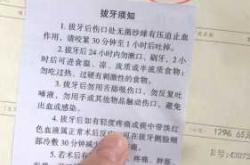 拔牙须知
1. 拔牙后伤口处无菌纱球有压迫止血
作用，请咬紧30分钟至1小时后吐掉。
2. 拔牙后24小时内勿漱口，刷牙，2小
时后可进食温、凉、流质或半流质食物；
勿吃过热、过硬有刺激性的食物。
3. 拔牙后勿用舌舔吸伤口、勿反复吐
唾液，勿用手或其他物品触动伤口，避免
出血或感染。
4. 拔牙后如有轻度疼痛或唾中带淡红
色血液属正常
部冷敷30分钟
5. 若术后
1296.65